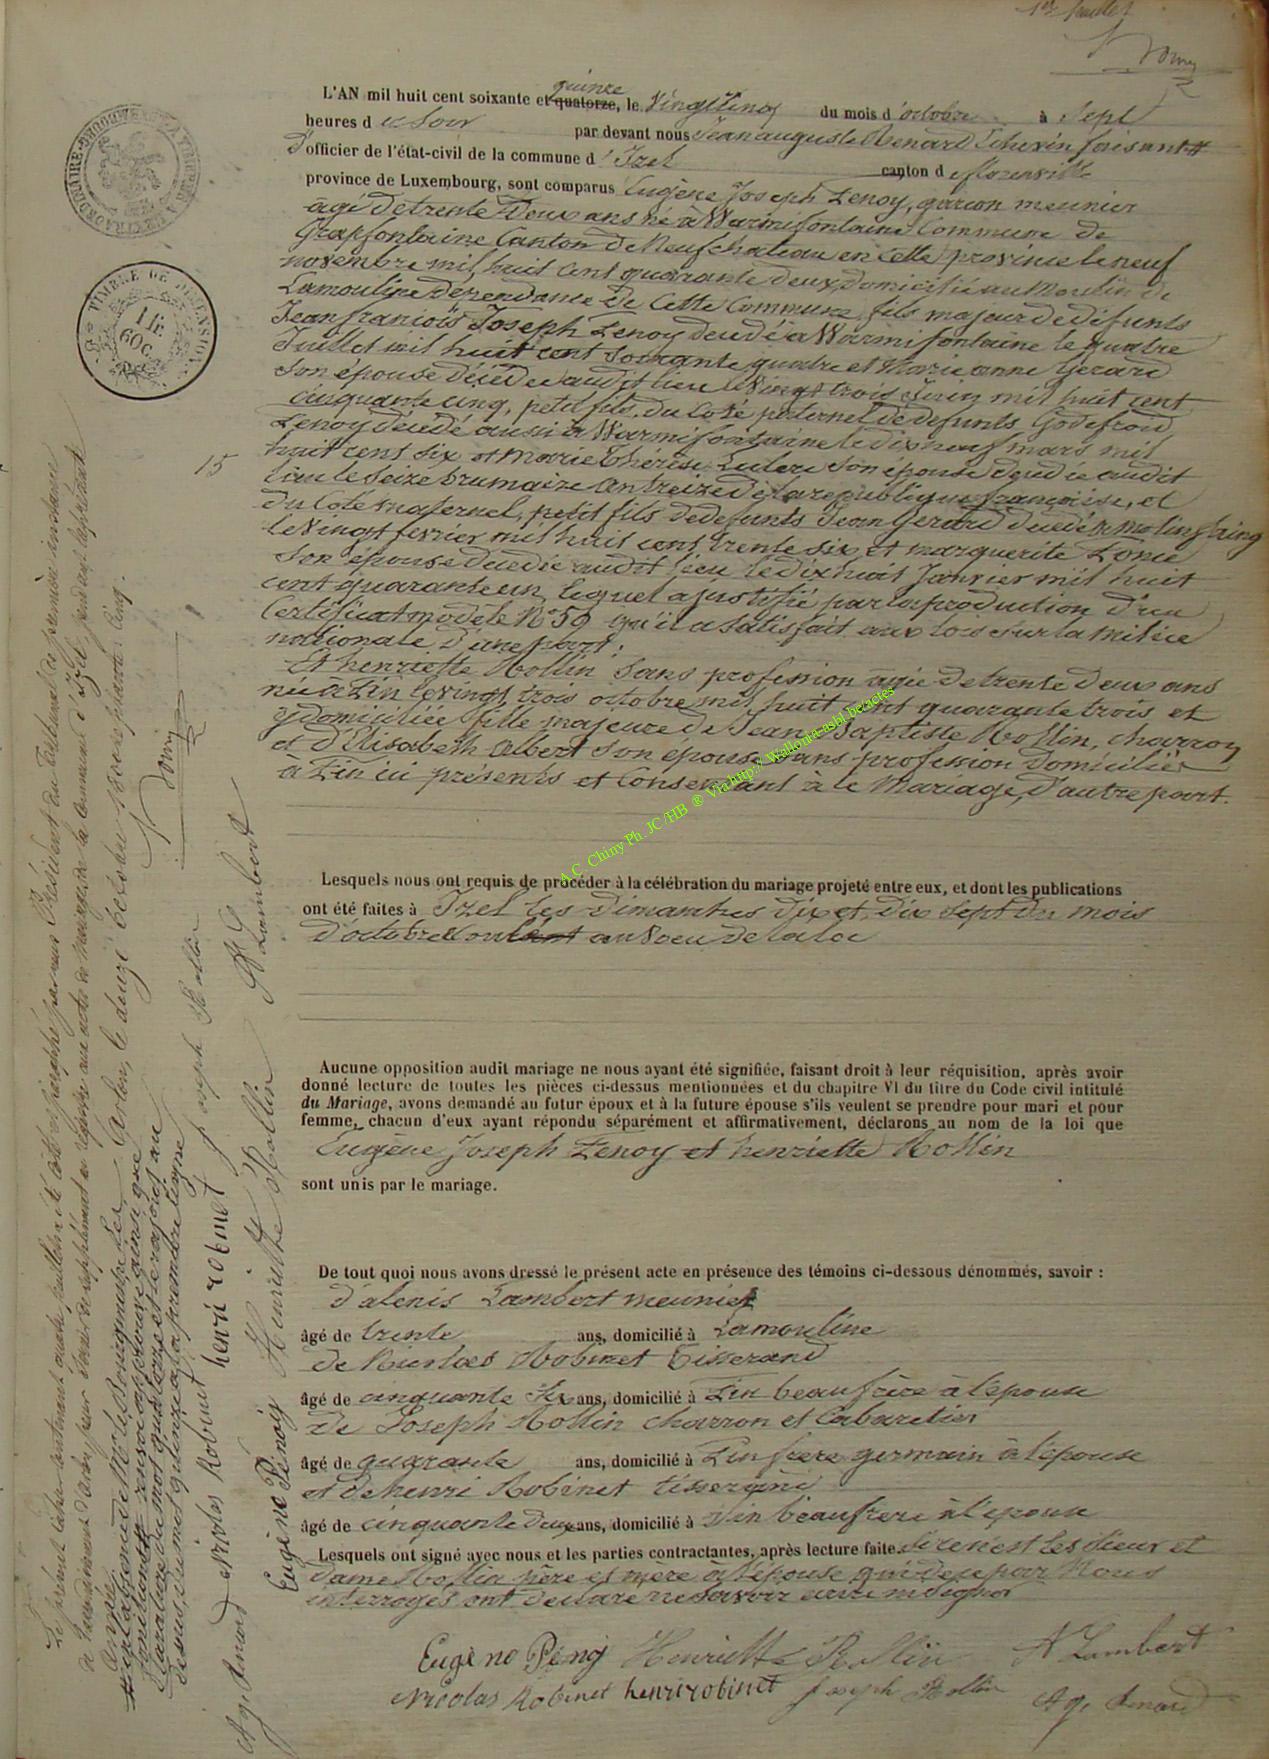 1er Juillet
L'AN mil huit cent soixante et quatorze, quinze le vingt cinq du mois d'octobre à Sept
heures d u Soir par devant nous Jean auguste Renard Echevin faisant #
d'officier de l'état-civil de la commune d' Izel canton de florenville
province de Luxembourg, sont comparus Eugène Joseph Penoy, garçon meunier
âgé de trente Deux ans né à Warmifontaine Commune de
Grapfontaine Canton de Neufchateau en cette province le neuf
novembre mil huit cent quarante deux, domicilié au Moulin de
Lamouline dépendance de Cette Commune, fils majeur de défunts
Jean françois Joseph Penoy decédé à Warmifontaine le quatre
Juillet mil huit cent Soixante quatre et Marie anne Gerard
Son epouse décédée audit lieu le Vingt trois Juin mil huit cent
cinquante cinq, petit fils, du Coté paternel de defunts Godefroid
Penoy décédé aussi à Warmifontaine le dix neuf mars mil
huit cens six et Marie Thérèse Leclerc Son epouse decedée audit
lieu le Seize brumaire an treize de la république françoise, et
du Coté maternel, petit fils de defunts Jean Gerard decédé à molinfaing
le Vingt fevrier mil huit cent trente six et marguerite
Son épouse decedée audit lieu le dix huit Janvier mil huit
cent quarante un, lequel a justifié par la production d'un
Certificat modèle No 59 qu'il a Satisfait aux lois sur la milice
nationale d'une part;
Et henriette Rollin Sans profession agée de trente deux ans
née à Pin le vingt trois octobre mil huit cent quarante trois et
y domiciliée fille majeure de Jean Baptiste Rollin, charron
et d'Elisabeth Albert Son epouse sans profession domiciliés
à Pin ici présents et Consentant à ce Mariage, d'autre part.
A.C. Chiny Ph. JC /HB ® Via http:// Wallonia-asbl.be/actes
Lesquels nous ont requis de procéder à la célébration du mariage projeté entre eux, et dont les publications
ont été faites à Izel les Dimanches dix et dix Sept du mois
d'octobre au Voeu de la loi
Aucune opposition audit mariage ne nous ayant été signifiée, faisant droit à leur réquisition, après avoir
donné lecture de toutes les pièces ci-dessus mentionnées et du chapitre VI du titre du Code civil intitulé
du Mariage, avons demandé au futur époux et à la future épouse s'ils veulent se prendre pour mari et pour
femme, chacun d'eux ayant répondu séparément et affirmativement, déclarons au nom de la loi que
Eugène Joseph Penoy et henriette Rollin
sont unis par le mariage.
De tout quoi nous avons dressé le présent acte en présence des témoins ci-dessous dénommés, savoir :
D'alexis Lambert meunier
âgé de trente ans, domicilié à Lamouline
de Nicolas Robinet Tisserand
âgé de cinquante Six ans, domicilié à Pin beaufrère à l'épouse
de Joseph Rollin charron et Cabaretier
âgé de quarante ans, domicilié à Pin frere germain à l'épouse
et de henri Robinet tisserand
âgé de cinquante deux ans, domicilié à Pin beaufrere à l'épouse
Lesquels ont signé avec nous et les parties contractantes, après lecture faite. Si ce n'est les Sieur et
dame Rollin père et mère à l'épouse qui de ce par Nous
interrogés ont declaré ne Savoir ecrire ni signer
Eugène Pénoy Henriette Rollin A Lambert
Nicolas Robinet henri robinet Joseph Rollin Ag. Renard
15
Le présent cahier contenant quatre feuillets a été coté et paraphé par nous Président du Tribunal de première instance
de l'arrondissement d'Arlon, pour servir de supplément au registre aux actes de mariage de la commune d'Izel pendant l'année
Arlon, le douze octobre 18cent soixante quinze
Ag. Renard Nicolas Robinet henri robinet Joseph Rollin
Eugène Pénoy Henriette Rollin A Lambert